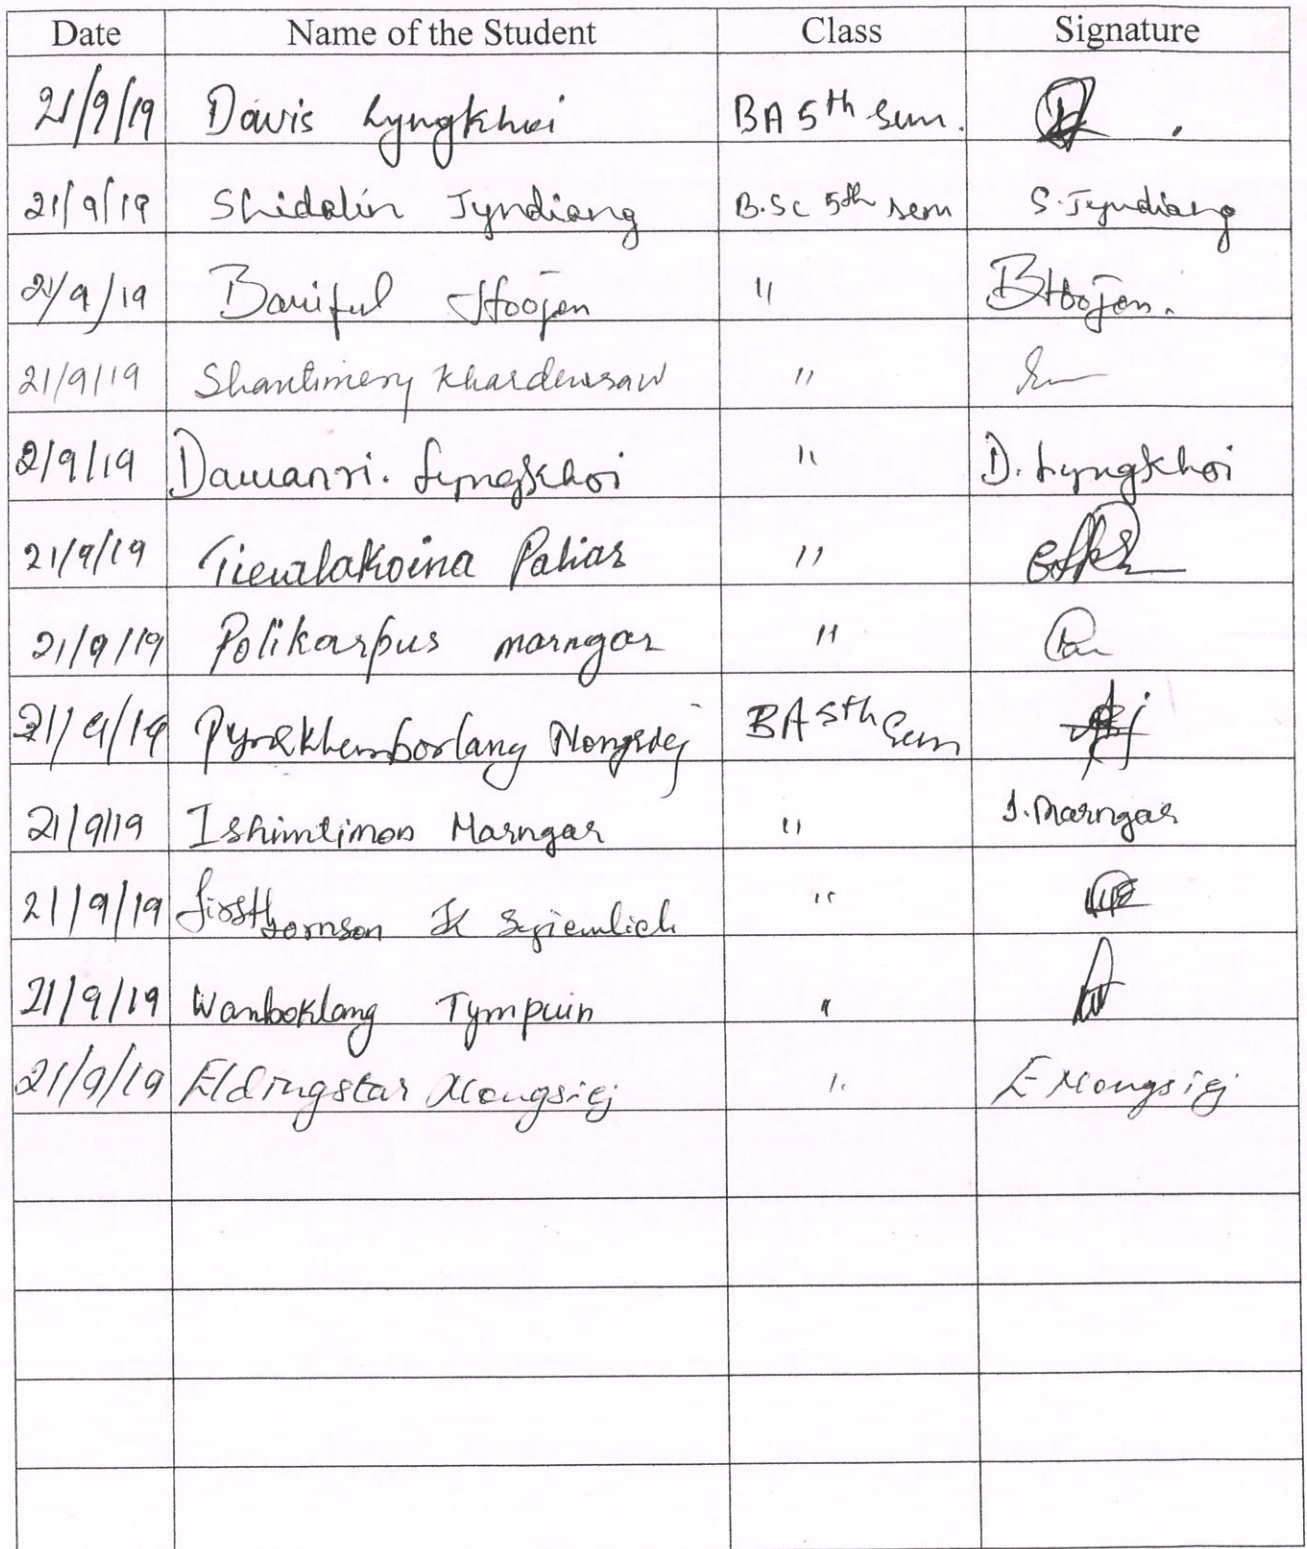 Date Name of the Student Class Signature
21/9/19 Davis Lyngkhoi BA 5th Sem.
21/9/19 Shidalin Jyndiang B.Sc 5th sem S. Jyndiang
21/9/19 Bariful Hoojon " BHoojon.
21/9/19 Shantimery Khardewsaw "
2/9/19 Dawanri. Lyngkhoi " D. Lyngkhoi
21/9/19 Tiewlakoina Pahiar "
21/9/19 Polikarpus marngar "
21/9/19 Pynskhemborlang Nongsiej BA 5th Sem
21/9/19 Ishimtimon Marngar " I. Marngar
21/9/19 firstbornson Syiemlieh "
21/9/19 Wanboklang Tympuin "
21/9/19 Eldingstar Nongsiej " E Nongsiej